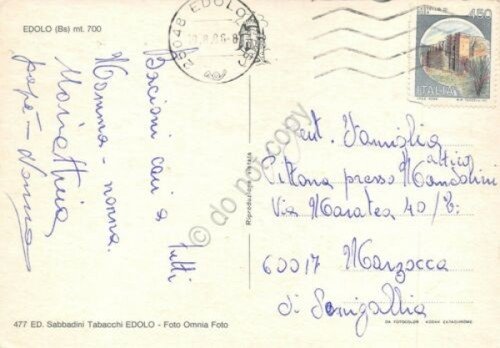 EDOLO (Bs) mt. 700
Bacioni cari a tutti
Mamma - nonna.
papà - Nonno
25048 EDOLO
450
ITALIA
Gent. Famiglia
Pittona presso
Via Maratea 40/B:
60017 Marzocca
di Senigallia
Riproduzione vietata
do not copy
477 ED. Sabbadini Tabacchi EDOLO - Foto Omnia Foto
DA FOTOCOLOR KODAK EKTACHROME